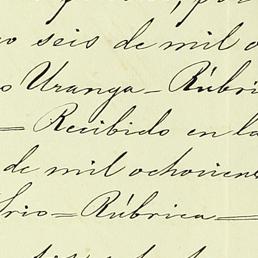 seis de mil
Uranga - Rúbri
= Recibido en la
de mil ochocien
Srio = Rúbrica =